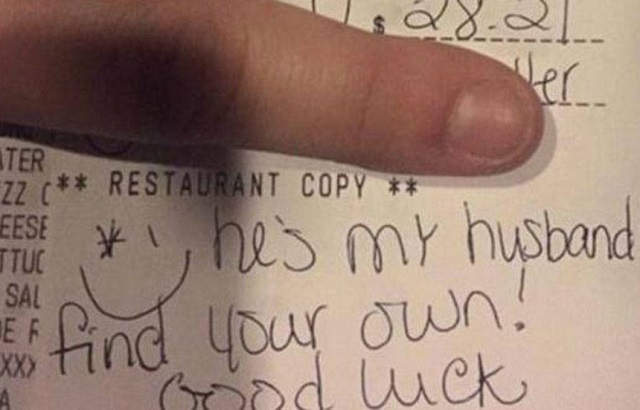 $ 28.21
ATER
ZZ C
** RESTAURANT COPY **
EESE
TTUC
he's my husband
SAL
find your own!
DE F
XXX
Good luck
A